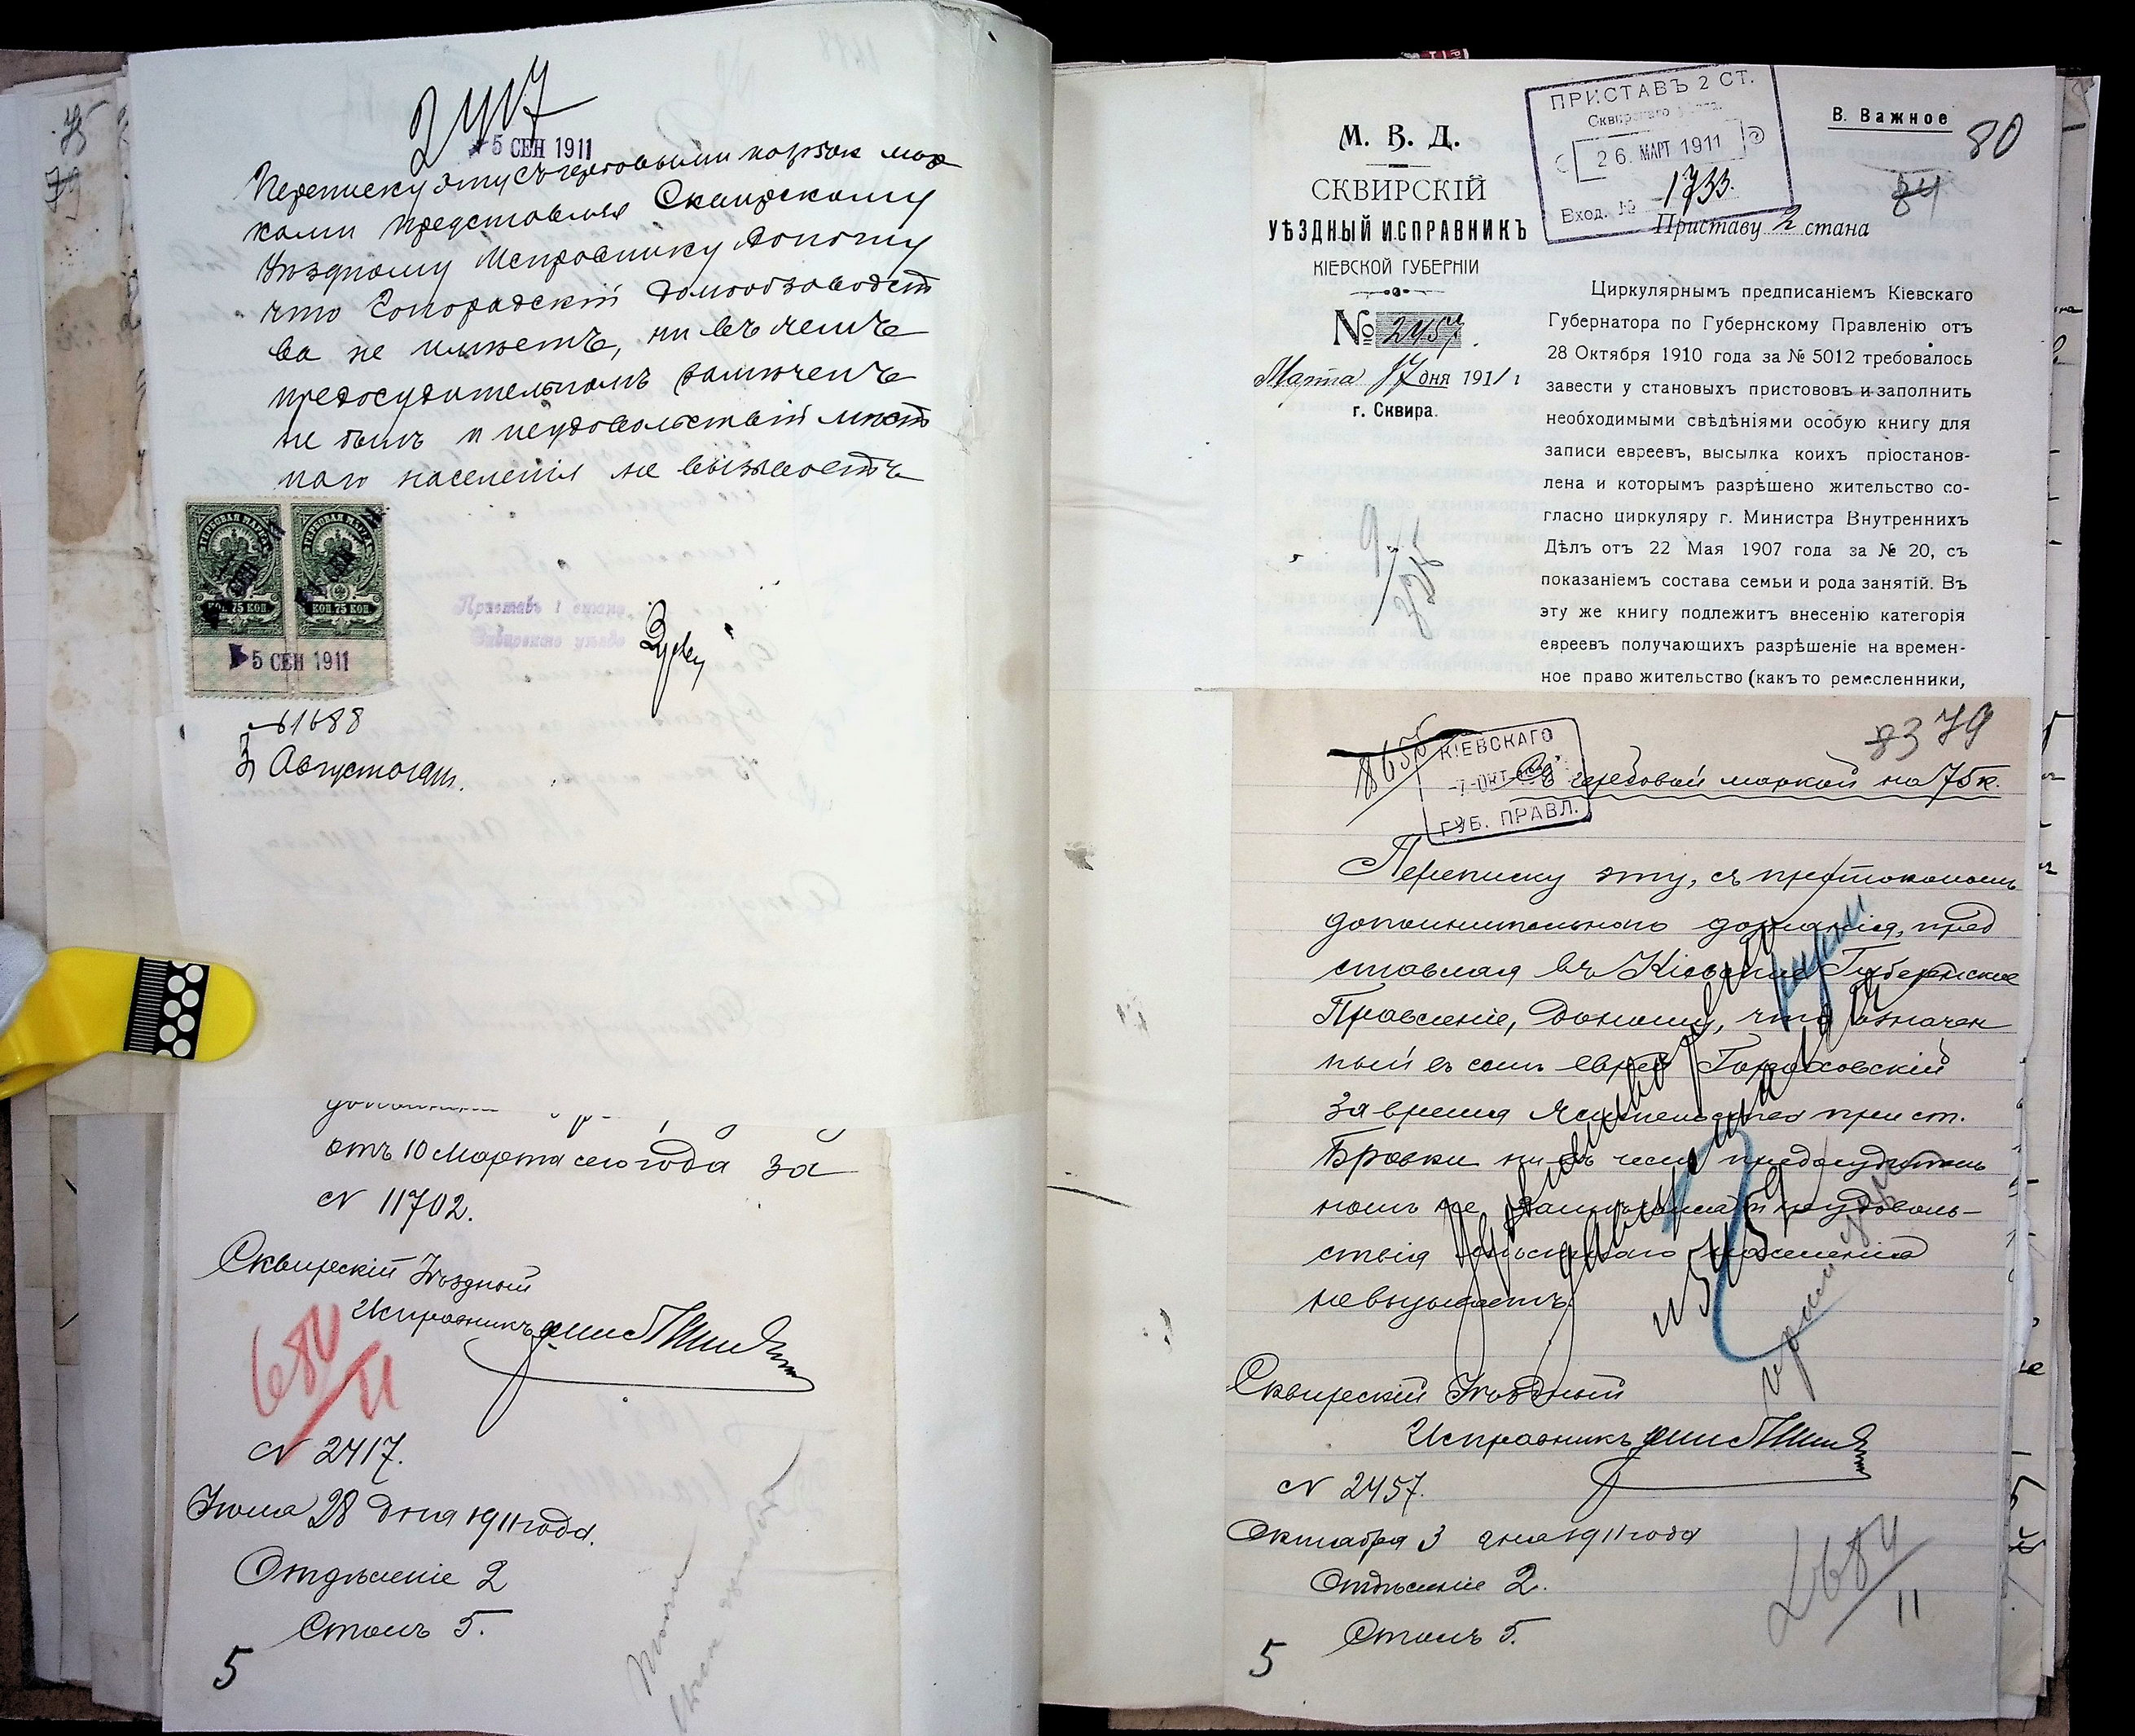 75
79
2417
5 СЕН 1911
Переписку эту съ гербовыми
ками представляя Сквирскому
Уѣздному Исправнику доношу
что домообзаводст
ва не имѣетъ, ни въ чемъ
предосудительномъ замѣченъ
не былъ и неудовольствій мѣст
наго населенія не вызываетъ
ГЕРБОВАЯ МАРКА
ГЕРБОВАЯ МАРКА
КОП. 75 КОП
КОП. 75 КОП
5 СЕН 1911
Приставъ 1 стана
Сквирскаго уѣзда
1688
Августа 1911г.
отъ 10 Марта сего года за
№ 11702.
Сквирскій Уѣздный
Исправникъ
684/11
№ 2417.
28 дня 1911 года.
Отдѣленіе 2
Столъ 5.
5
М. В. Д.
СКВИРСКІЙ
УѢЗДНЫЙ ИСПРАВНИКЪ
КІЕВСКОЙ ГУБЕРНІИ
№ 2457.
Марта 17 дня 1911 г
г. Сквира.
ПРИСТАВЪ 2 СТ.
Сквирскаго уѣзда.
26. МАРТ 1911
Вход. № 1733.
В. Важное
80
84
Приставу 2 стана
Циркулярнымъ предписаніемъ Кіевскаго
Губернатора по Губернскому Правленію отъ
28 Октября 1910 года за № 5012 требовалось
завести у становыхъ пристововъ и заполнить
необходимыми свѣдѣніями особую книгу для
записи евреевъ, высылка коихъ пріостанов-
лена и которымъ разрѣшено жительство со-
гласно циркуляру г. Министра Внутреннихъ
Дѣлъ отъ 22 Мая 1907 года за № 20, съ
показаніемъ состава семьи и рода занятій. Въ
эту же книгу подлежитъ внесенію категорія
евреевъ получающихъ разрѣшеніе на времен-
ное право жительство (какъ то ремесленники,
83 79
18655
КІЕВСКАГО
7 ОКТ
ГУБ. ПРАВЛ.
Съ гербовой маркой на 75 к.
Переписку эту, съ протоколомъ
дополнительнаго дознанія, пред
ставляя въ Кіевское Губернское
Правленіе, доношу, что означен
ный въ семъ еврей Гороховскій
за время жительства при ст.
Бровки ни въ чемъ предосудитель
номъ не замѣченъ и неудоволь-
ствія мѣстнаго населенія
невызываетъ.
Сквирскій Уѣздный
Исправникъ
№ 2457.
Октября 3 дня 1911 года
Отдѣленіе 2.
Столъ 5.
5
2684/11